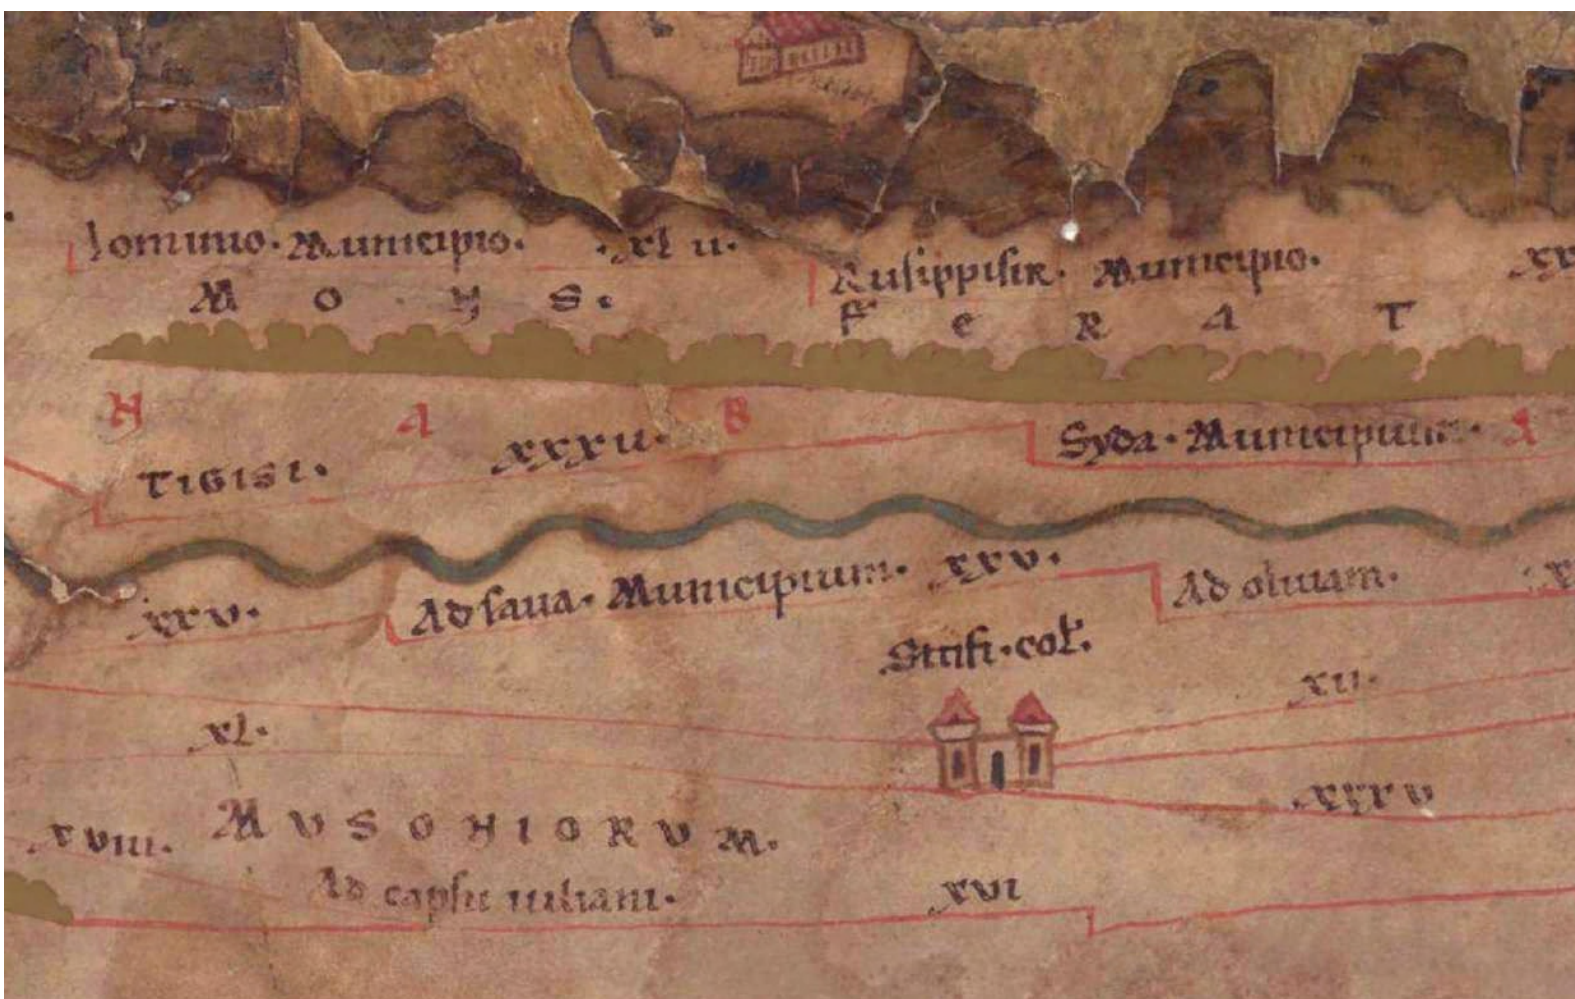 Iominio · Municipio · · xl ii ·
Rusippisir · Municipio · xx
M O N S ·
F E R A T
N A B A
TIGISI · xxxii ·
Syda · Municipium ·
xxv · Ad sava · Municipium · xxv · Ad olivam ·
Sitifi · col ·
xii ·
xl ·
xxxv
xviii · MUSONIORUM ·
Ad capsu iuliani · xvi